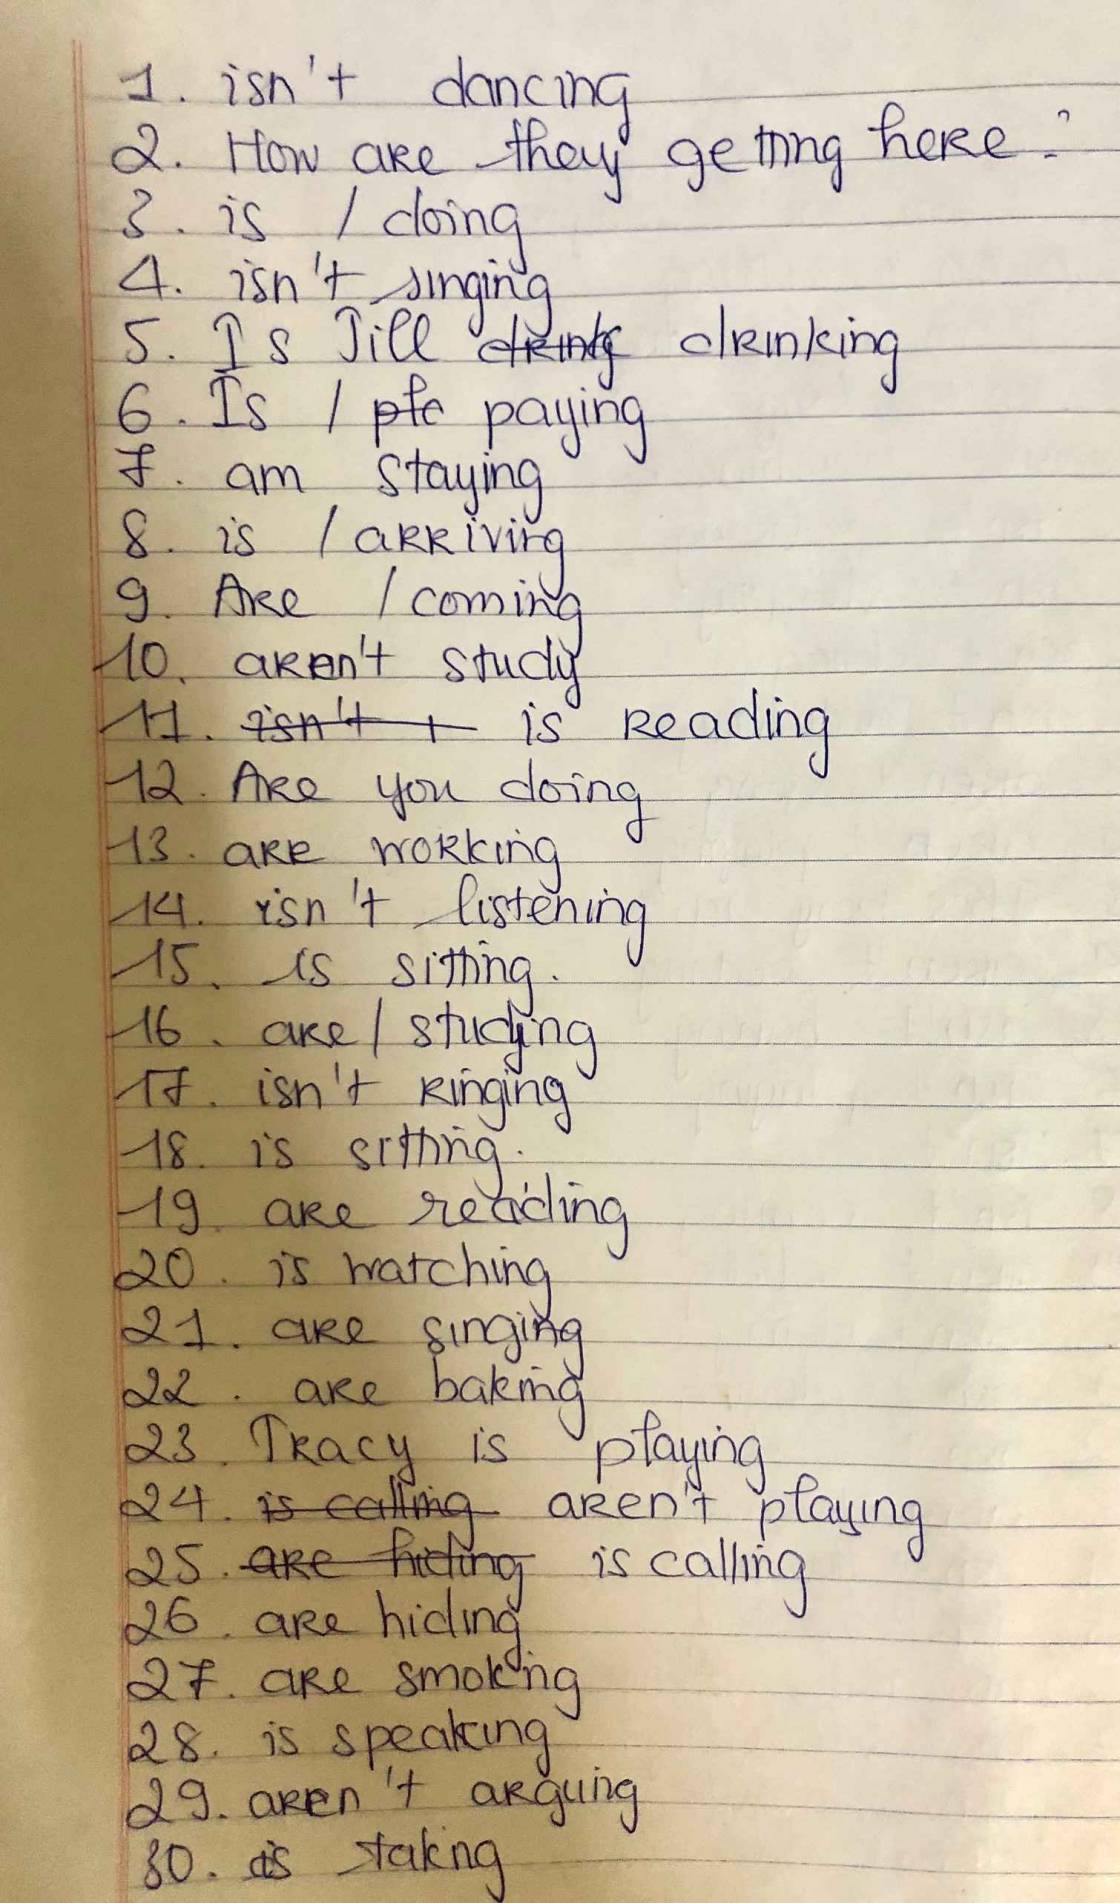 1. isn't dancing
2. How are they getting here?
3. is / doing
4. isn't singing
5. Is Jill drink drinking
6. Is / paying
7. am staying
8. is / arriving
9. Are / coming
10. aren't study
11. isn't is reading
12. Are you doing
13. are working
14. isn't listening
15. is sitting.
16. are / studing
17. isn't ringing
18. is sitting.
19. are reading
20. is watching
21. are singing
22. are baking
23. Tracy is playing
24. is calling aren't playing
25. are hiding is calling
26. are hiding
27. are smoking
28. is speaking
29. aren't arguing
30. is taking